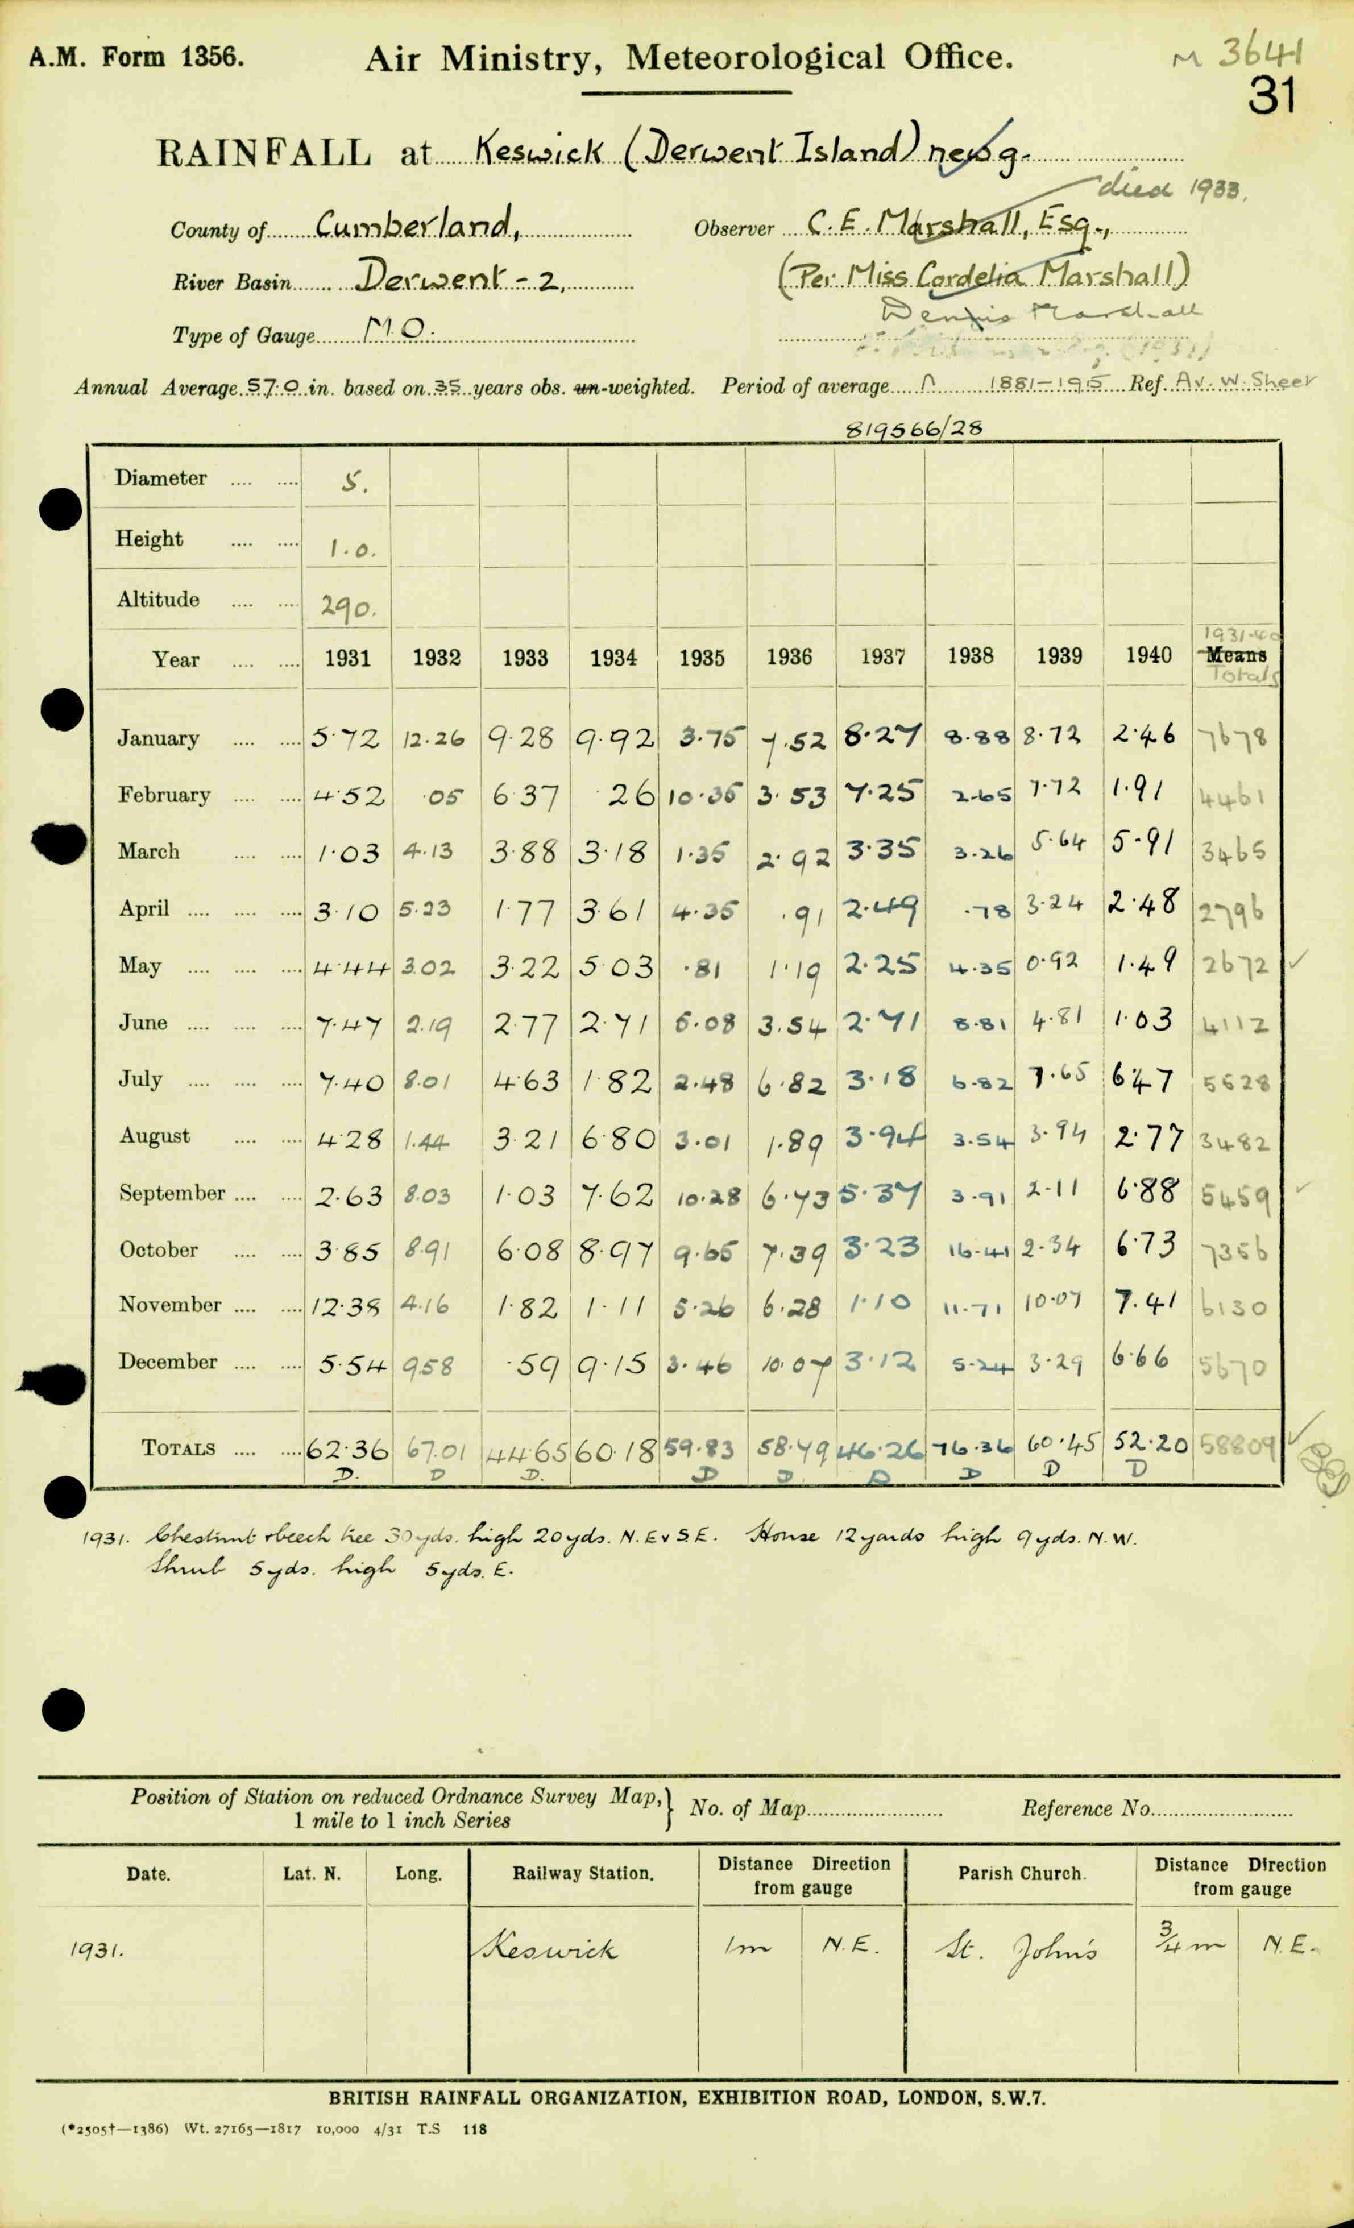 A.M. Form 1356. Air Ministry, Meteorological Office. M 3641
31
RAINFALL at Keswick (Derwent Island) new g.
died 1933.
County of Cumberland, Observer C. E. Marshall, Esq.,
River Basin Derwent - 2, (Per Miss Cordelia Marshall)
Dennis Marshall
Type of Gauge M.O.
(1931)
Annual Average 57.0 in. based on 35 years obs. un-weighted. Period of average 1881-1915 Ref. Av. W. Sheet
819566/28
Diameter .... .... 5.
Height .... .... 1.0.
Altitude .... .... 290.
1931-40
Year .... .... 1931 1932 1933 1934 1935 1936 1937 1938 1939 1940 Means
Totals
January .... .... 5.72 12.26 9.28 9.92 3.75 7.52 8.27 8.88 8.72 2.46 7678
February .... .... 4.52 .05 6.37 .26 10.35 3.53 7.25 2.65 7.72 1.91 4461
March .... .... 1.03 4.13 3.88 3.18 1.35 2.92 3.35 3.26 5.64 5.91 3465
April .... .... .... 3.10 5.23 1.77 3.61 4.35 .91 2.49 .78 3.24 2.48 2796
May .... .... .... 4.44 3.02 3.22 5.03 .81 1.19 2.25 4.35 0.92 1.49 2672 ✓
June .... .... .... 7.47 2.19 2.77 2.71 5.08 3.54 2.71 8.81 4.81 1.03 4112
July .... .... .... 7.40 8.01 4.63 1.82 2.48 6.82 3.18 6.82 7.65 6.47 5528
August .... .... 4.28 1.44 3.21 6.80 3.01 1.89 3.94 3.54 3.94 2.77 3482
September .... .... 2.63 8.03 1.03 7.62 10.28 6.73 5.37 3.91 2.11 6.88 5459 ✓
October .... .... 3.85 8.91 6.08 8.97 9.65 7.39 3.23 16.41 2.34 6.73 7356
November .... .... 12.38 4.16 1.82 1.11 5.26 6.28 1.10 11.71 10.07 7.41 6130
December .... .... 5.54 9.58 .59 9.15 3.46 10.07 3.12 5.24 3.29 6.66 5670
TOTALS .... .... 62.36 67.01 44.65 60.18 59.83 58.79 46.26 76.36 60.45 52.20 58809 ✓
D. D D. D D. D D D D
1931. Chestnut & beech tree 30 yds. high 20 yds. N.E & S.E. House 12 yards high 9 yds. N.W.
Shrub 5 yds. high 5 yds. E.
Position of Station on reduced Ordnance Survey Map, } No. of Map Reference No.
1 mile to 1 inch Series
Date. Lat. N. Long. Railway Station. Distance Direction from gauge Parish Church. Distance Direction from gauge
1931. Keswick 1m N.E. St. John's 3/4 m N.E.
BRITISH RAINFALL ORGANIZATION, EXHIBITION ROAD, LONDON, S.W.7.
(*2505†—1386) Wt. 27165—1817 10,000 4/31 T.S 118